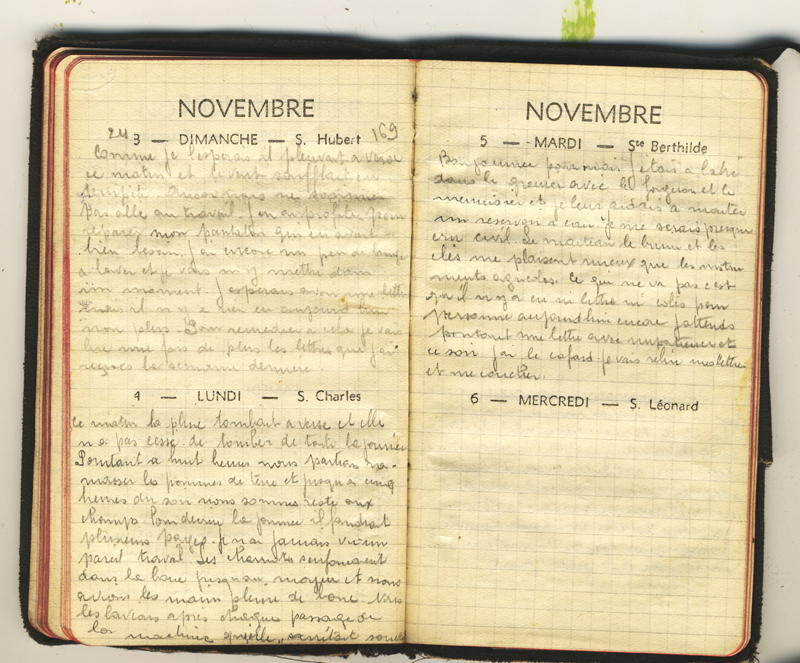 NOVEMBRE
24 3 — DIMANCHE — S. Hubert 169
Comme je l'esperais il pleuvait a verse
ce matin et le vent soufflait en
ne sommes
pas allé au travail. J'en ai profité pour
réparer mon pantalon qui en avait
bien besoin. J'ai encore un peu de linge
a laver et je vais m'y mettre dans
un moment. J'esperais avoir une lettre
mais il n'y a rien eu aujourd'hui
non plus. Pour remedier a cela je vais
lire une fois de plus les lettres que j'ai
reçues la semaine derniere.
4 — LUNDI — S. Charles
Ce matin la pluie tombait a verse et elle
n'a pas cessé de tomber de toute la journée
Pourtant a huit heures nous partions ra-
masser les pommes de terre et jusqu'a cinq
heures du soir nous sommes resté aux
champs. Pour decrire la journée il faudrait
plusieurs pages. Je n'ai jamais vu un
pareil travail. Les charrettes s'enfoncaient
dans la boue jusqu'au moyeu et nous
avions les mains pleine de boue. Nous
les lavions apres chaque passage de
la machine qu'elle s'arrêtait
NOVEMBRE
5 — MARDI — Ste Berthilde
Bonne journée pour moi j'étais a l'abri
dans le grenier avec le forgeron et le
menuisier et je leur aidais a monter
un reservoir a eau. je me serais presque
cru civil. Le marteau le burin et les
clés me plaisent mieux que les instru
ments agricoles. Ce qui ne va pas c'est
qu'il n'y a eu ni lettre ni colis pour
personne aujourd'hui encore j'attends
pourtant une lettre avec impatience et
ce soir j'ai le cafard. je vais relire mes lettres
et me coucher.
6 — MERCREDI — S. Léonard